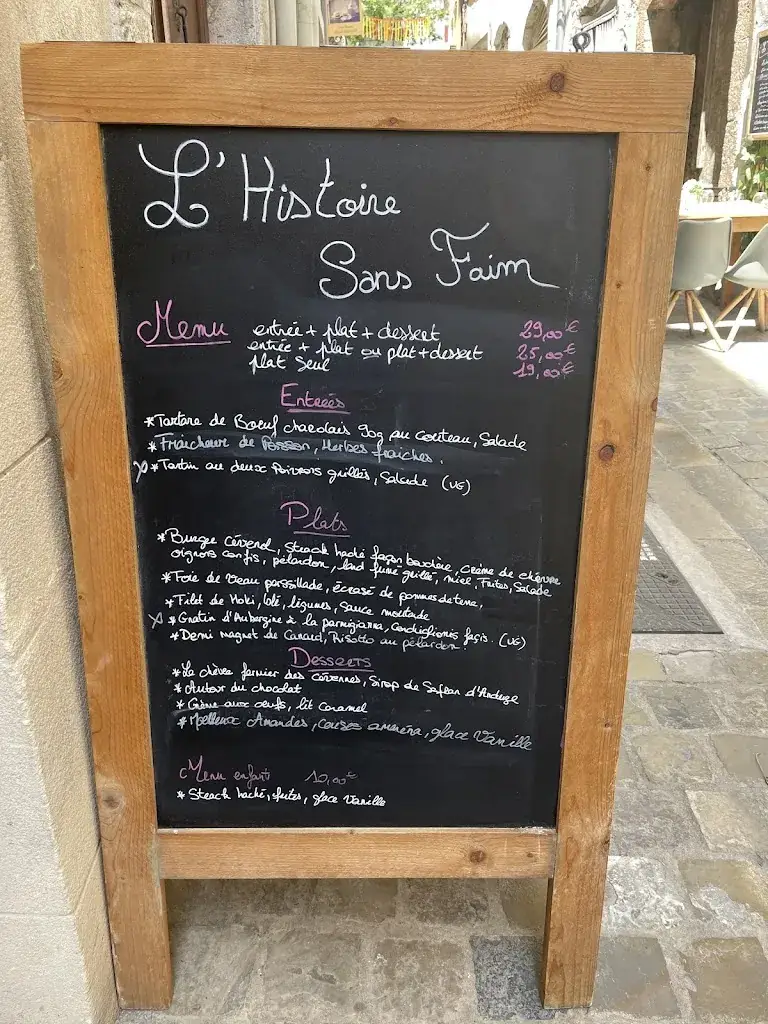 L'Histoire
Sans Faim
Menu
entrée + plat + dessert 29,00€
entrée + plat ou plat + dessert 25,00€
plat seul 19,00€
Entrées
*Tartare de Bœuf charolais 90g au couteau, Salade
*Fraicheur de Poisson, Herbes fraiches.
*Tartin au deux Poivrons grillés, Salade (VG)
Plats
*Burger Cévenol, Steack haché façon bouchère, Crème de chèvre
oignons confis, pélardon, lard fumé grillé, miel, Frites, Salade
*Foie de Veau persillade, écrasé de pommes de terre,
*Filet de Hoki, blé, légumes, Sauce moutarde
*Gratin d'Aubergine à la parmigianna, Conchiglionis façis. (VG)
*Demi magret de Canard, Risotto au pélardon.
Desserts
*Le chèvre fermier des Cévennes, Sirop de Safran d'Anduze
*Autour du chocolat
*Crème aux œufs, lit caramel
*Moelleux Amandes, glace Vanille
Menu enfant 10,00€
*Steack haché, frites, glace Vanille